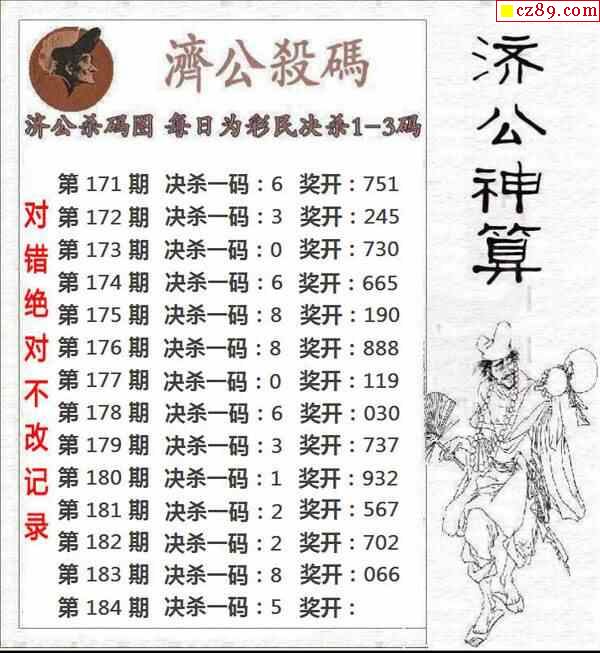 cz89.com
濟公殺碼
济公杀码图 每日为彩民决杀1-3码
第 171 期 决杀一码：6 奖开：751
第 172 期 决杀一码：3 奖开：245
第 173 期 决杀一码：0 奖开：730
第 174 期 决杀一码：6 奖开：665
第 175 期 决杀一码：8 奖开：190
第 176 期 决杀一码：8 奖开：888
第 177 期 决杀一码：0 奖开：119
第 178 期 决杀一码：6 奖开：030
第 179 期 决杀一码：3 奖开：737
第 180 期 决杀一码：1 奖开：932
第 181 期 决杀一码：2 奖开：567
第 182 期 决杀一码：2 奖开：702
第 183 期 决杀一码：8 奖开：066
第 184 期 决杀一码：5 奖开：
对错绝对不改记录
济公神算